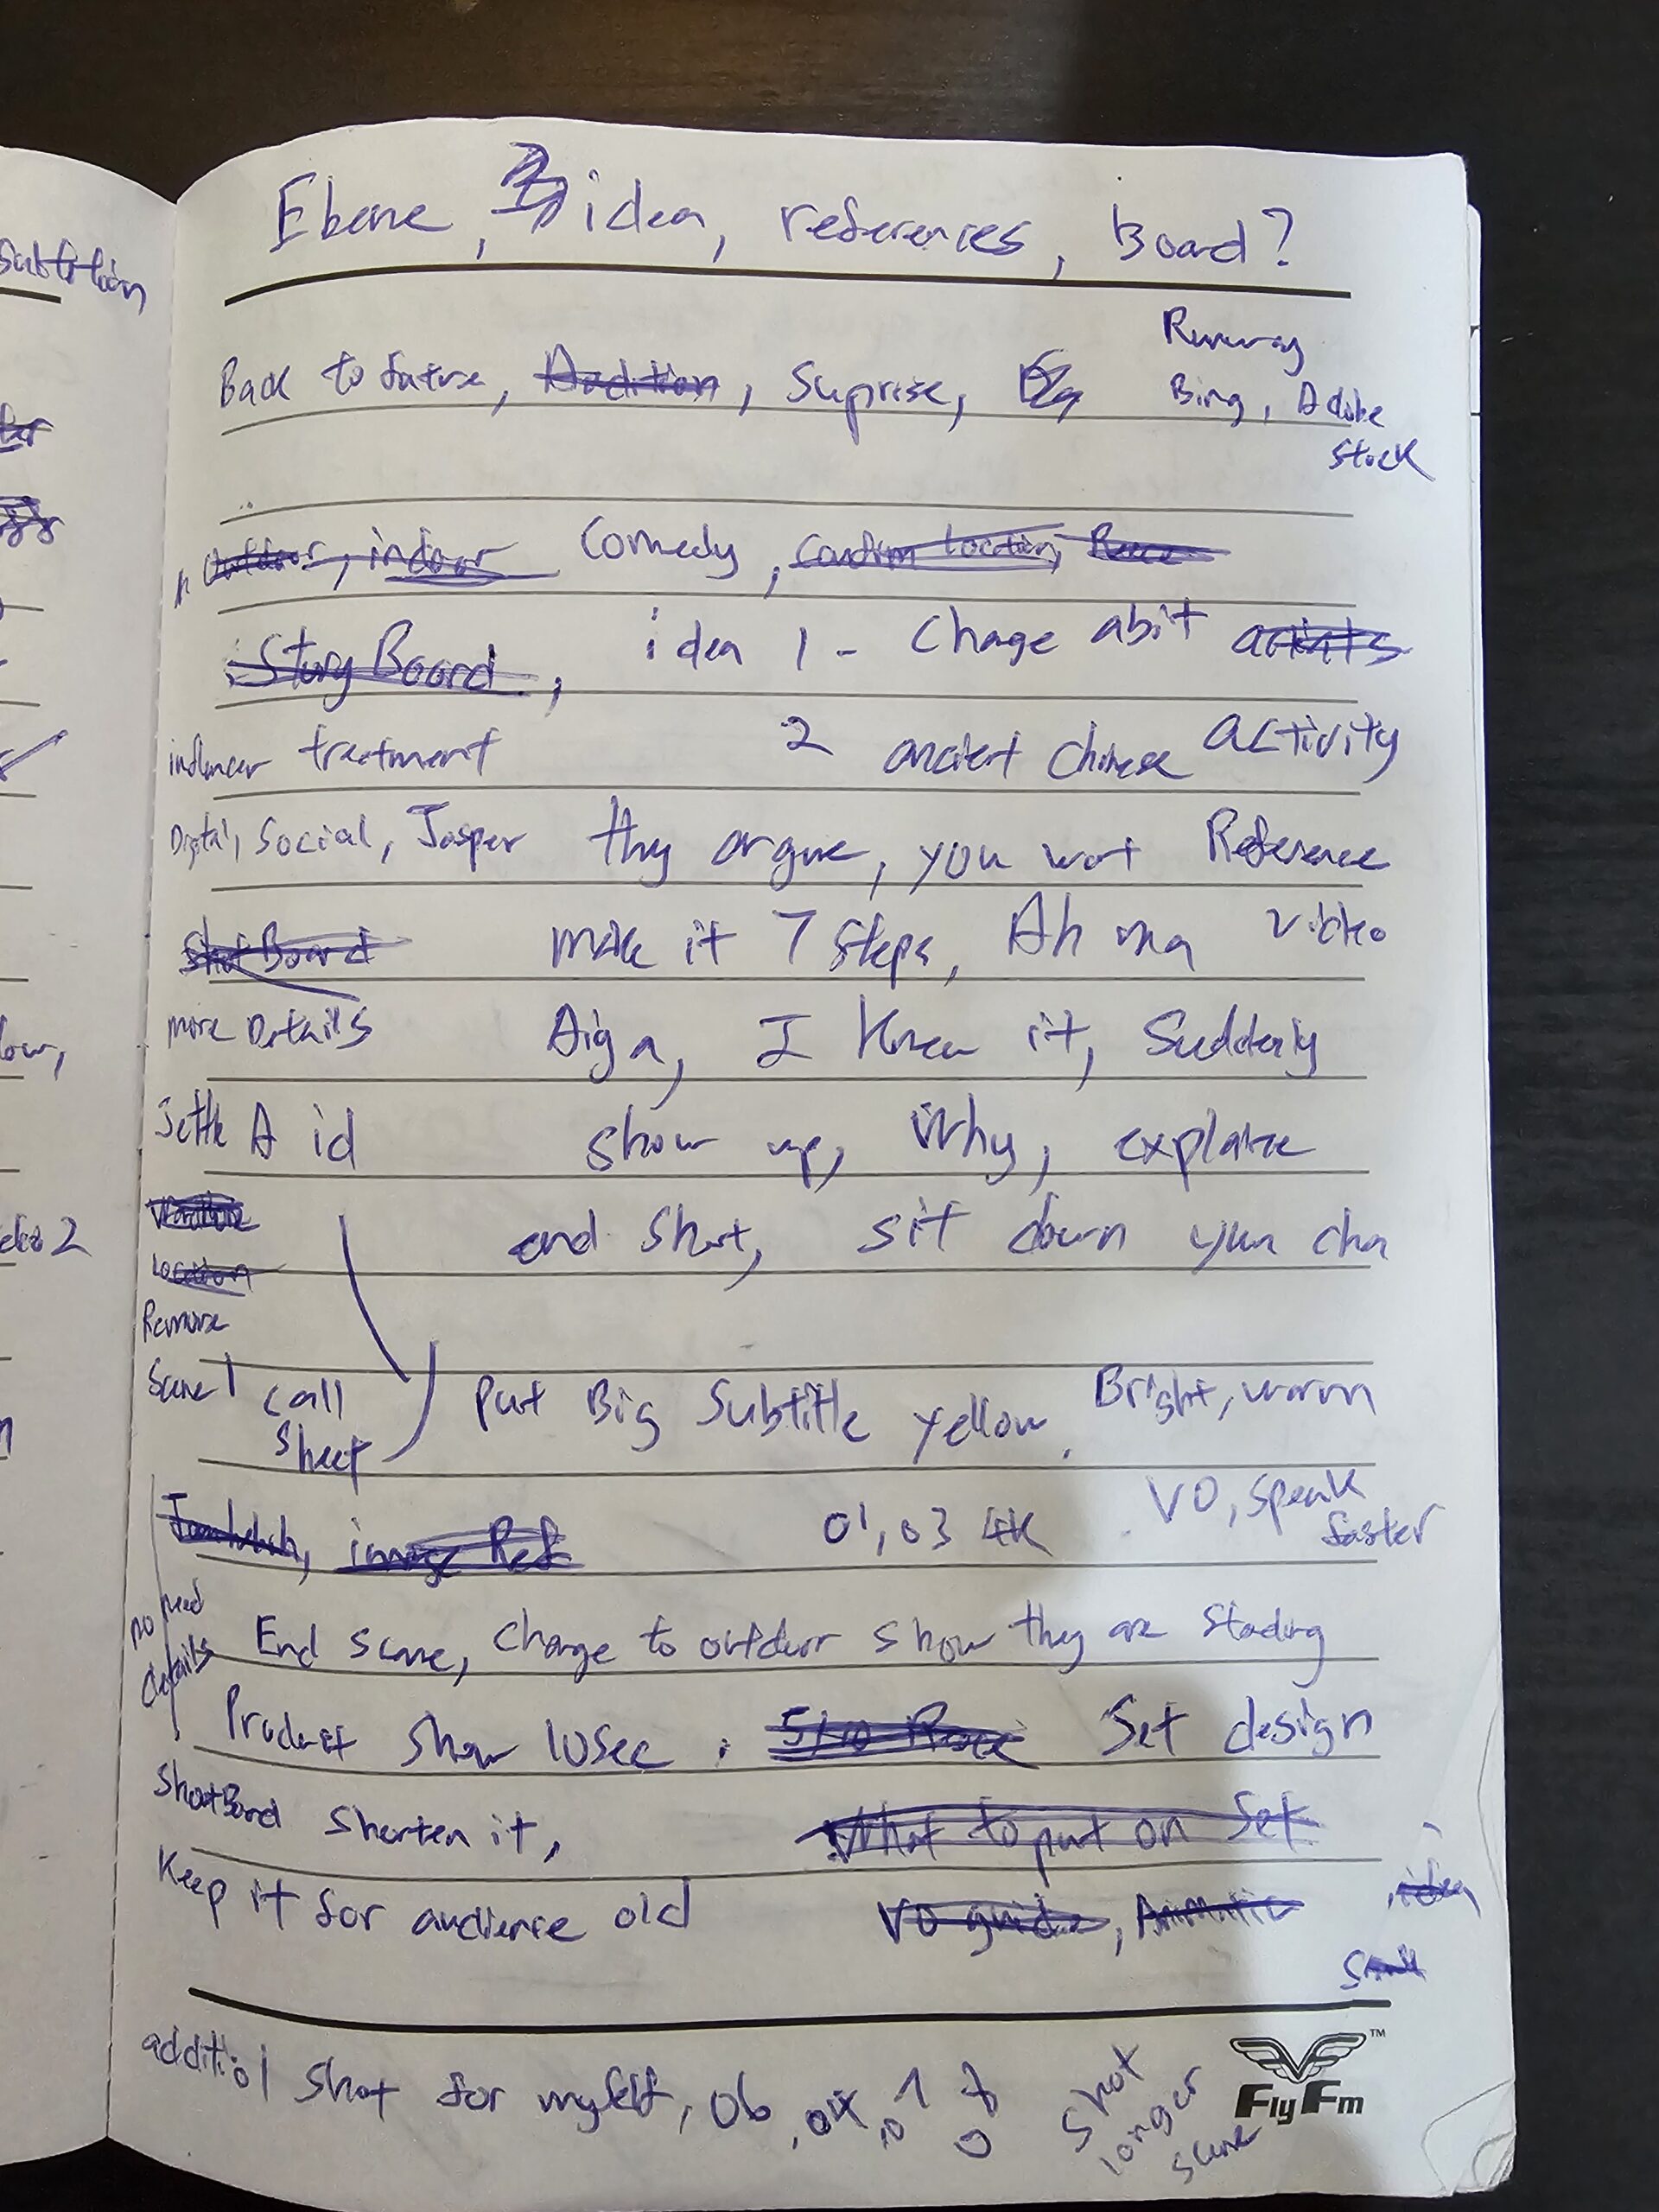 Ebene, idea, references, Board?
Runway
Back to future, Audition, Suprise, Bing, Adobe
Stock
Outdoor, indoor Comedy, Confirm location, Recce
Story Board, idea 1 - Change abit artists
influencer treatment 2 ancient chinese activity
Digital, Social, Jasper they argue, you want Reference
Shot Board make it 7 steps, Ah ma video
more Details Aiya, I knew it, Suddenly
Settle A id show up, Why, explaine
end shot, sit down yum cha
Location
Remove
Scene 1 call sheet Put Big Subtitle yellow. Bright, warm
image Ref 01, 03 4K VO, speak faster
no need details
End scene, change to outdoor show they are standing
Product show 10sec. Set design
ShotBord Shorten it, What to put on Set
Keep it for audience old VO guide, Animatic, idea
additiol Shot for myself, 06, 04, shot longer scene
FlyFm™
Subtition
low,